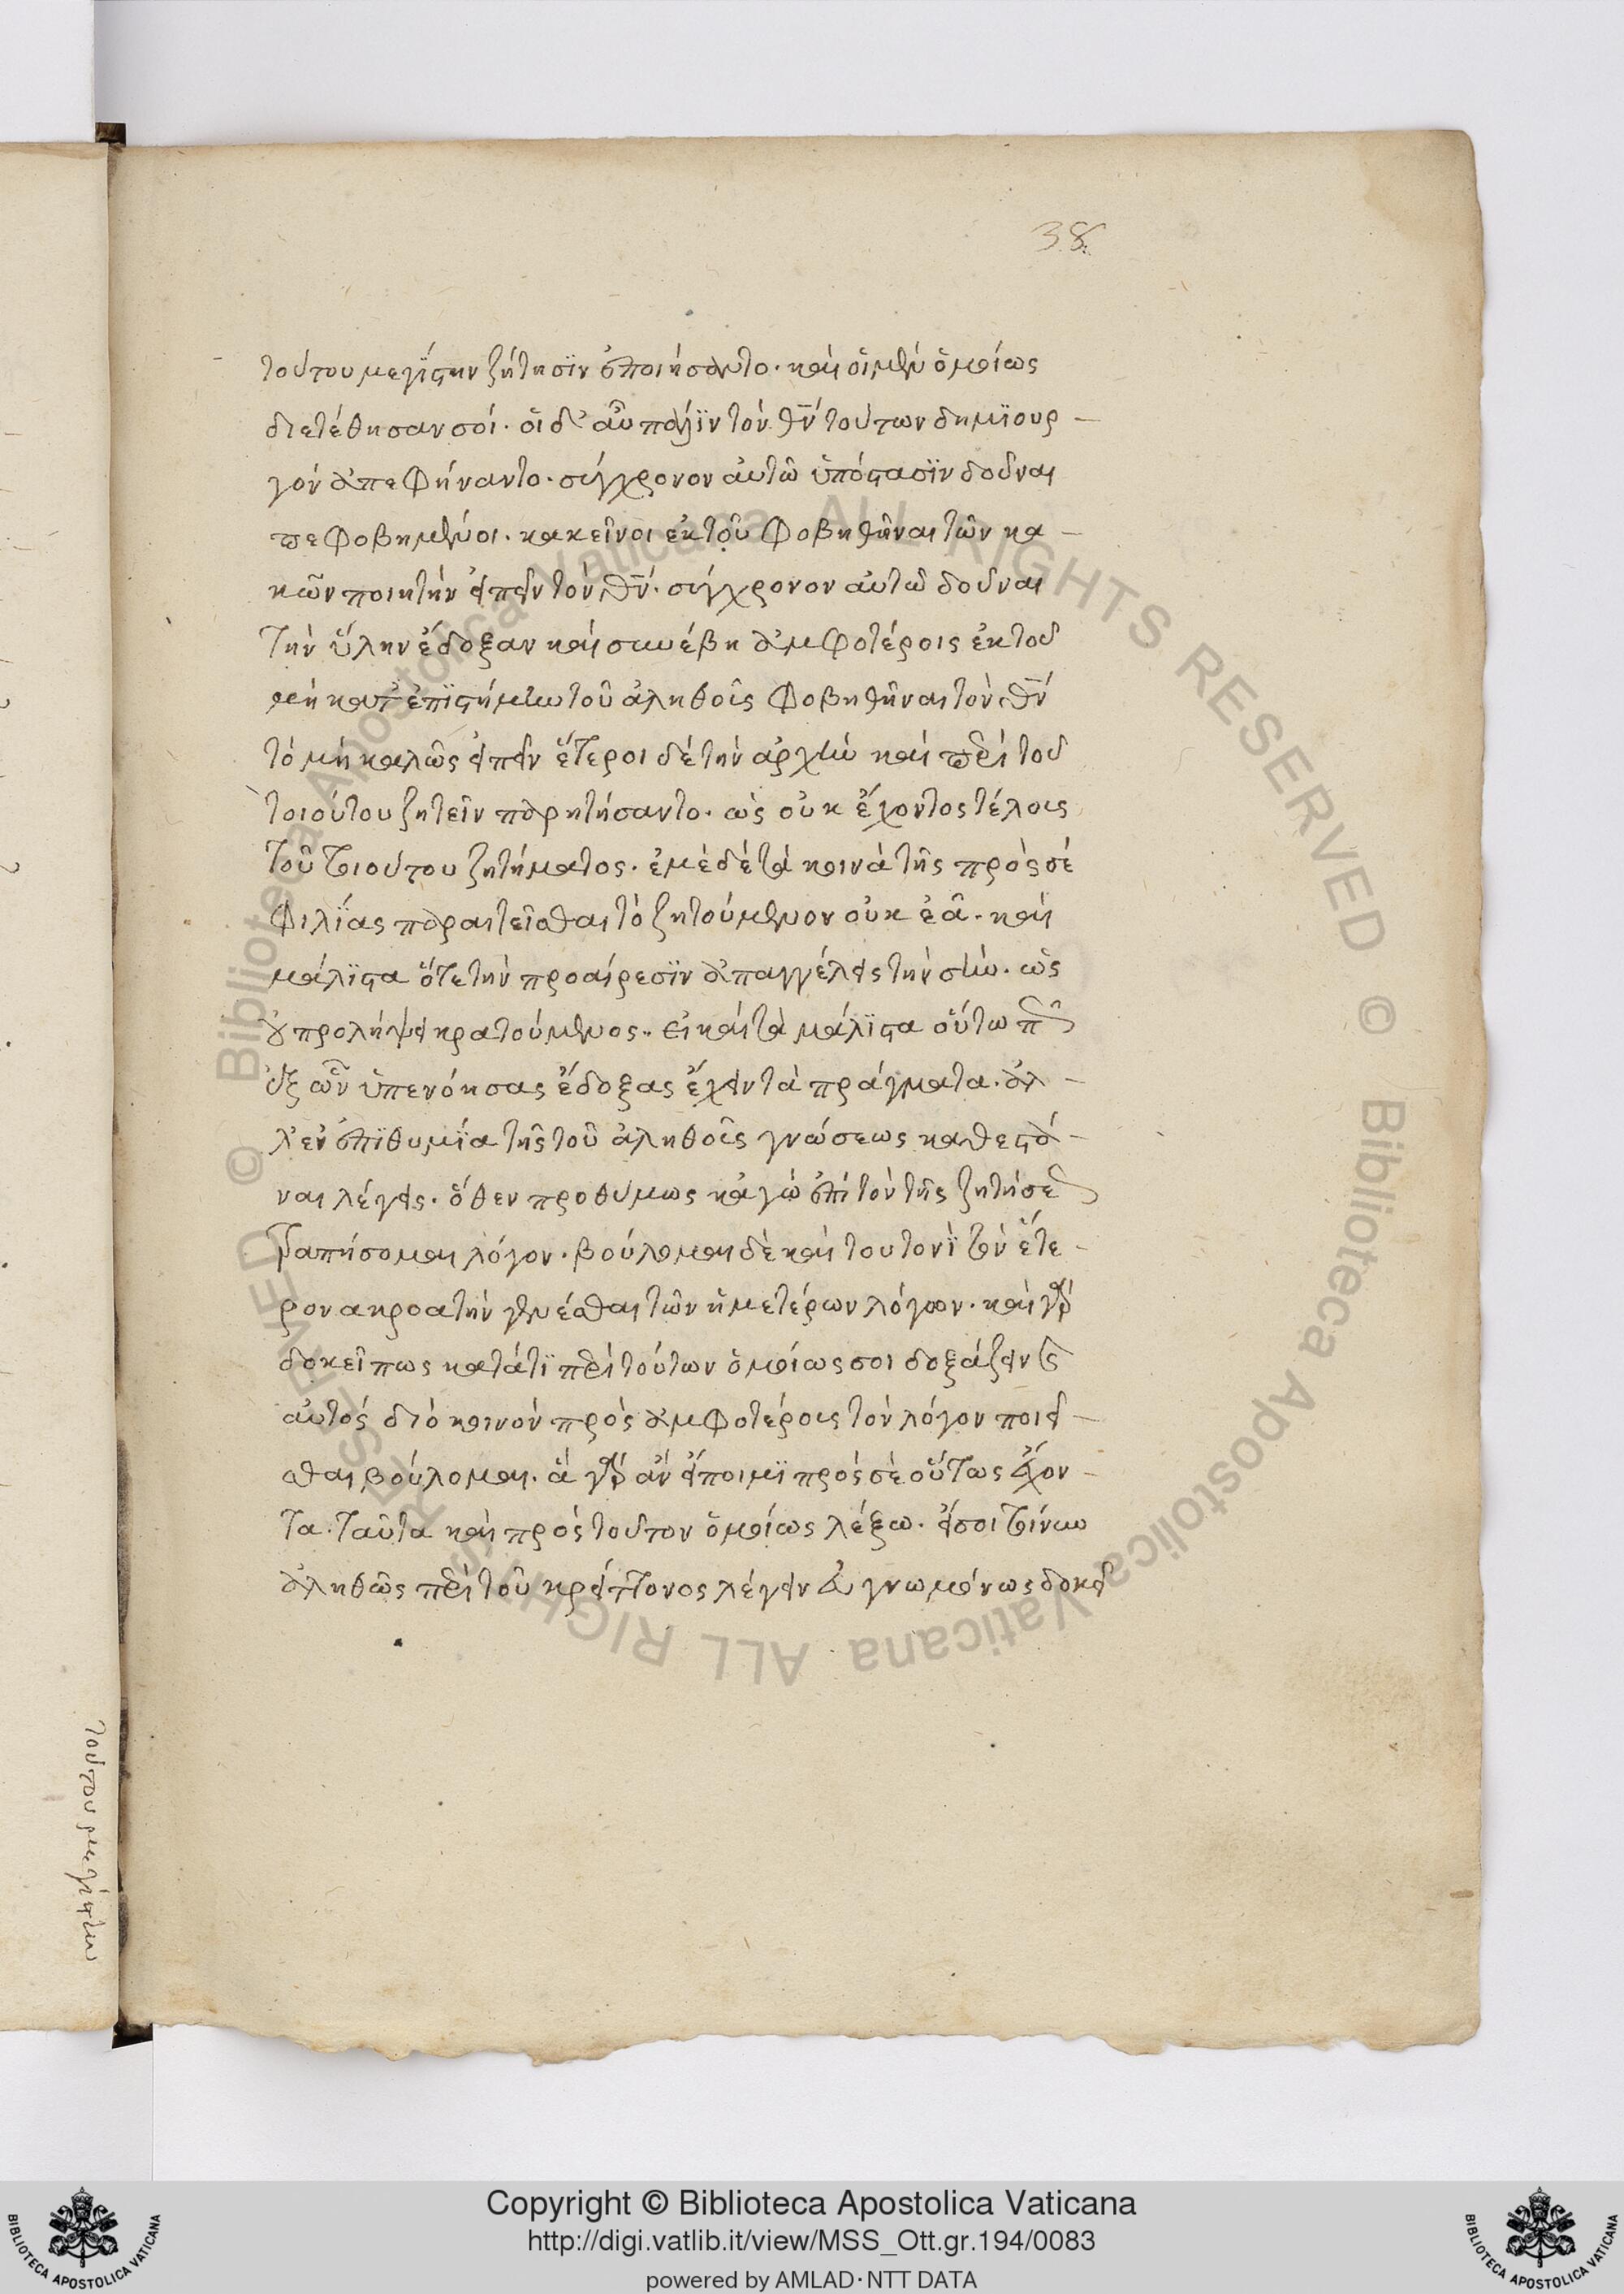 38
τούτου μεγίστην ζήτησϊν ἐποιήσαντο· καὶ οἱ μὲν ὁμοίως
διετέθησαν σοί· οἱ δ' αὖ πάλϊν τὸν θ̅ν̅ τούτων δημϊουρ -
γὸν ἀπεφήναντο· σύγχρονον αὐτῶ ὑπόστασϊν δοῦναι
πεφοβημένοι· κακεῖνοι ἐκ τοῦ φοβηθῆναι τῶν κα -
κῶν ποιητὴν εἰπεῖν τὸν θ̅ν̅· σύγχρονον αὐτῶ δοῦναι
τὴν ὕλην ἔδοξαν καὶ συνέβη ἀμφοτέροις ἐκ τοῦ
μὴ κατ' ἐπϊστήμην τοῦ ἀληθοῦς φοβηθῆναι τὸν θ̅ν̅
τὸ μὴ καλῶς εἰπεῖν ἕτεροι δὲ τὴν ἀρχὴν καὶ περὶ τοῦ
τοιούτου ζητεῖν παρητήσαντο· ὡς οὐκ ἔχοντος τέλους
τοῦ τοιούτου ζητήματος· ἐμὲ δὲ τὰ κοινὰ τῆς πρὸς σὲ
φιλΐας παραιτεῖσθαι τὸ ζητούμενον οὐκ ἐᾶ· καὶ
μάλϊστα ὅτε τὴν προαίρεσϊν ἀπαγγέλεις τὴν σὴν· ὡς
οὐ προλήψει κρατούμενος· εἰ καὶ τὰ μάλϊστα οὕτω π
ἐξ ὧν ὑπενόησας ἔδοξας ἔχειν τὰ πράγματα· ἀλ -
λ' ἐν ἐπϊθυμΐα τῆς τοῦ ἀληθοῦς γνώσεως καθεστά -
ναι λέγεις· ὅθεν προθύμως κἀγὼ ἐπὶ τὸν τῆς ζητήσε
τραπήσομαι λόγον· βούλομαι δὲ καὶ τουτονῒ τὸν ἕτε -
ρον ακροατὴν γενέσθαι τῶν ἡμετέρων λόγων· καὶ γὰρ
δοκεῖ πως κατά τϊ περὶ τούτων ὁμοίως σοι δοξάζειν
αὐτός διὸ κοινὸν πρὸς ἀμφοτέρους τὸν λόγον ποιεῖ -
σθαι βούλομαι· ἃ γὰρ ἂν εἴποιμϊ πρὸς σὲ οὕτως ἔχον -
τα· ταῦτα καὶ πρὸς τοῦτον ὁμοίως λέξω· εἴ σοι τοίνυν
ἀληθῶς περὶ τοῦ κρείττονος λέγειν εὐγνωμόνως δοκεῖ
τούτου μεγίστην
Copyright © Biblioteca Apostolica Vaticana
http://digi.vatlib.it/view/MSS_Ott.gr.194/0083
powered by AMLAD·NTT DATA